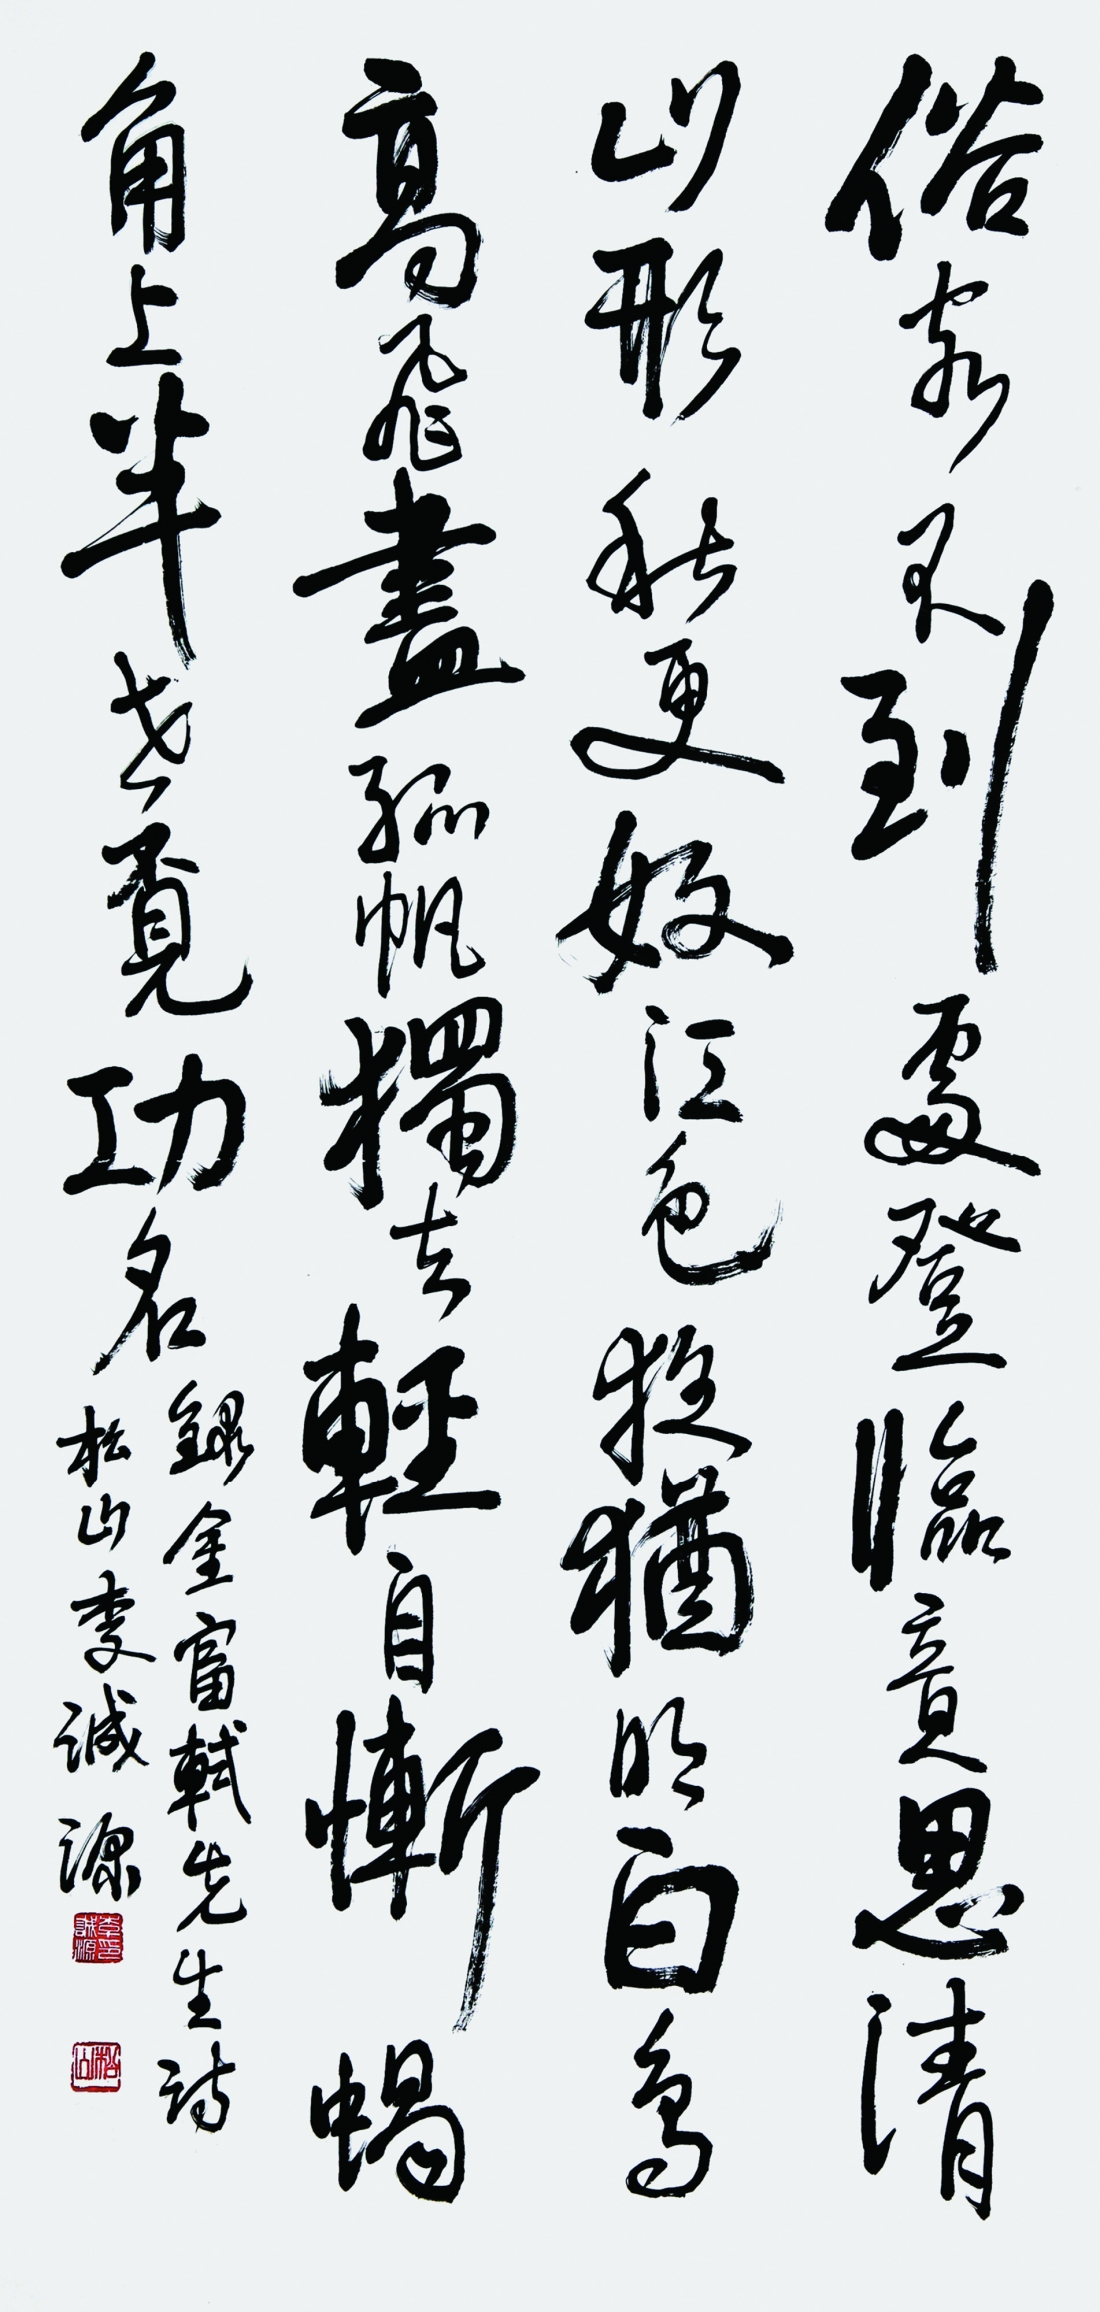 俗客不到處登臨意思清
山形秋更好江色夜猶明白鳥
高飛盡孤帆獨去輕自慚蝸
角上半世覓功名
錄金富軾先生詩
松山李誠源
李印誠源
松山